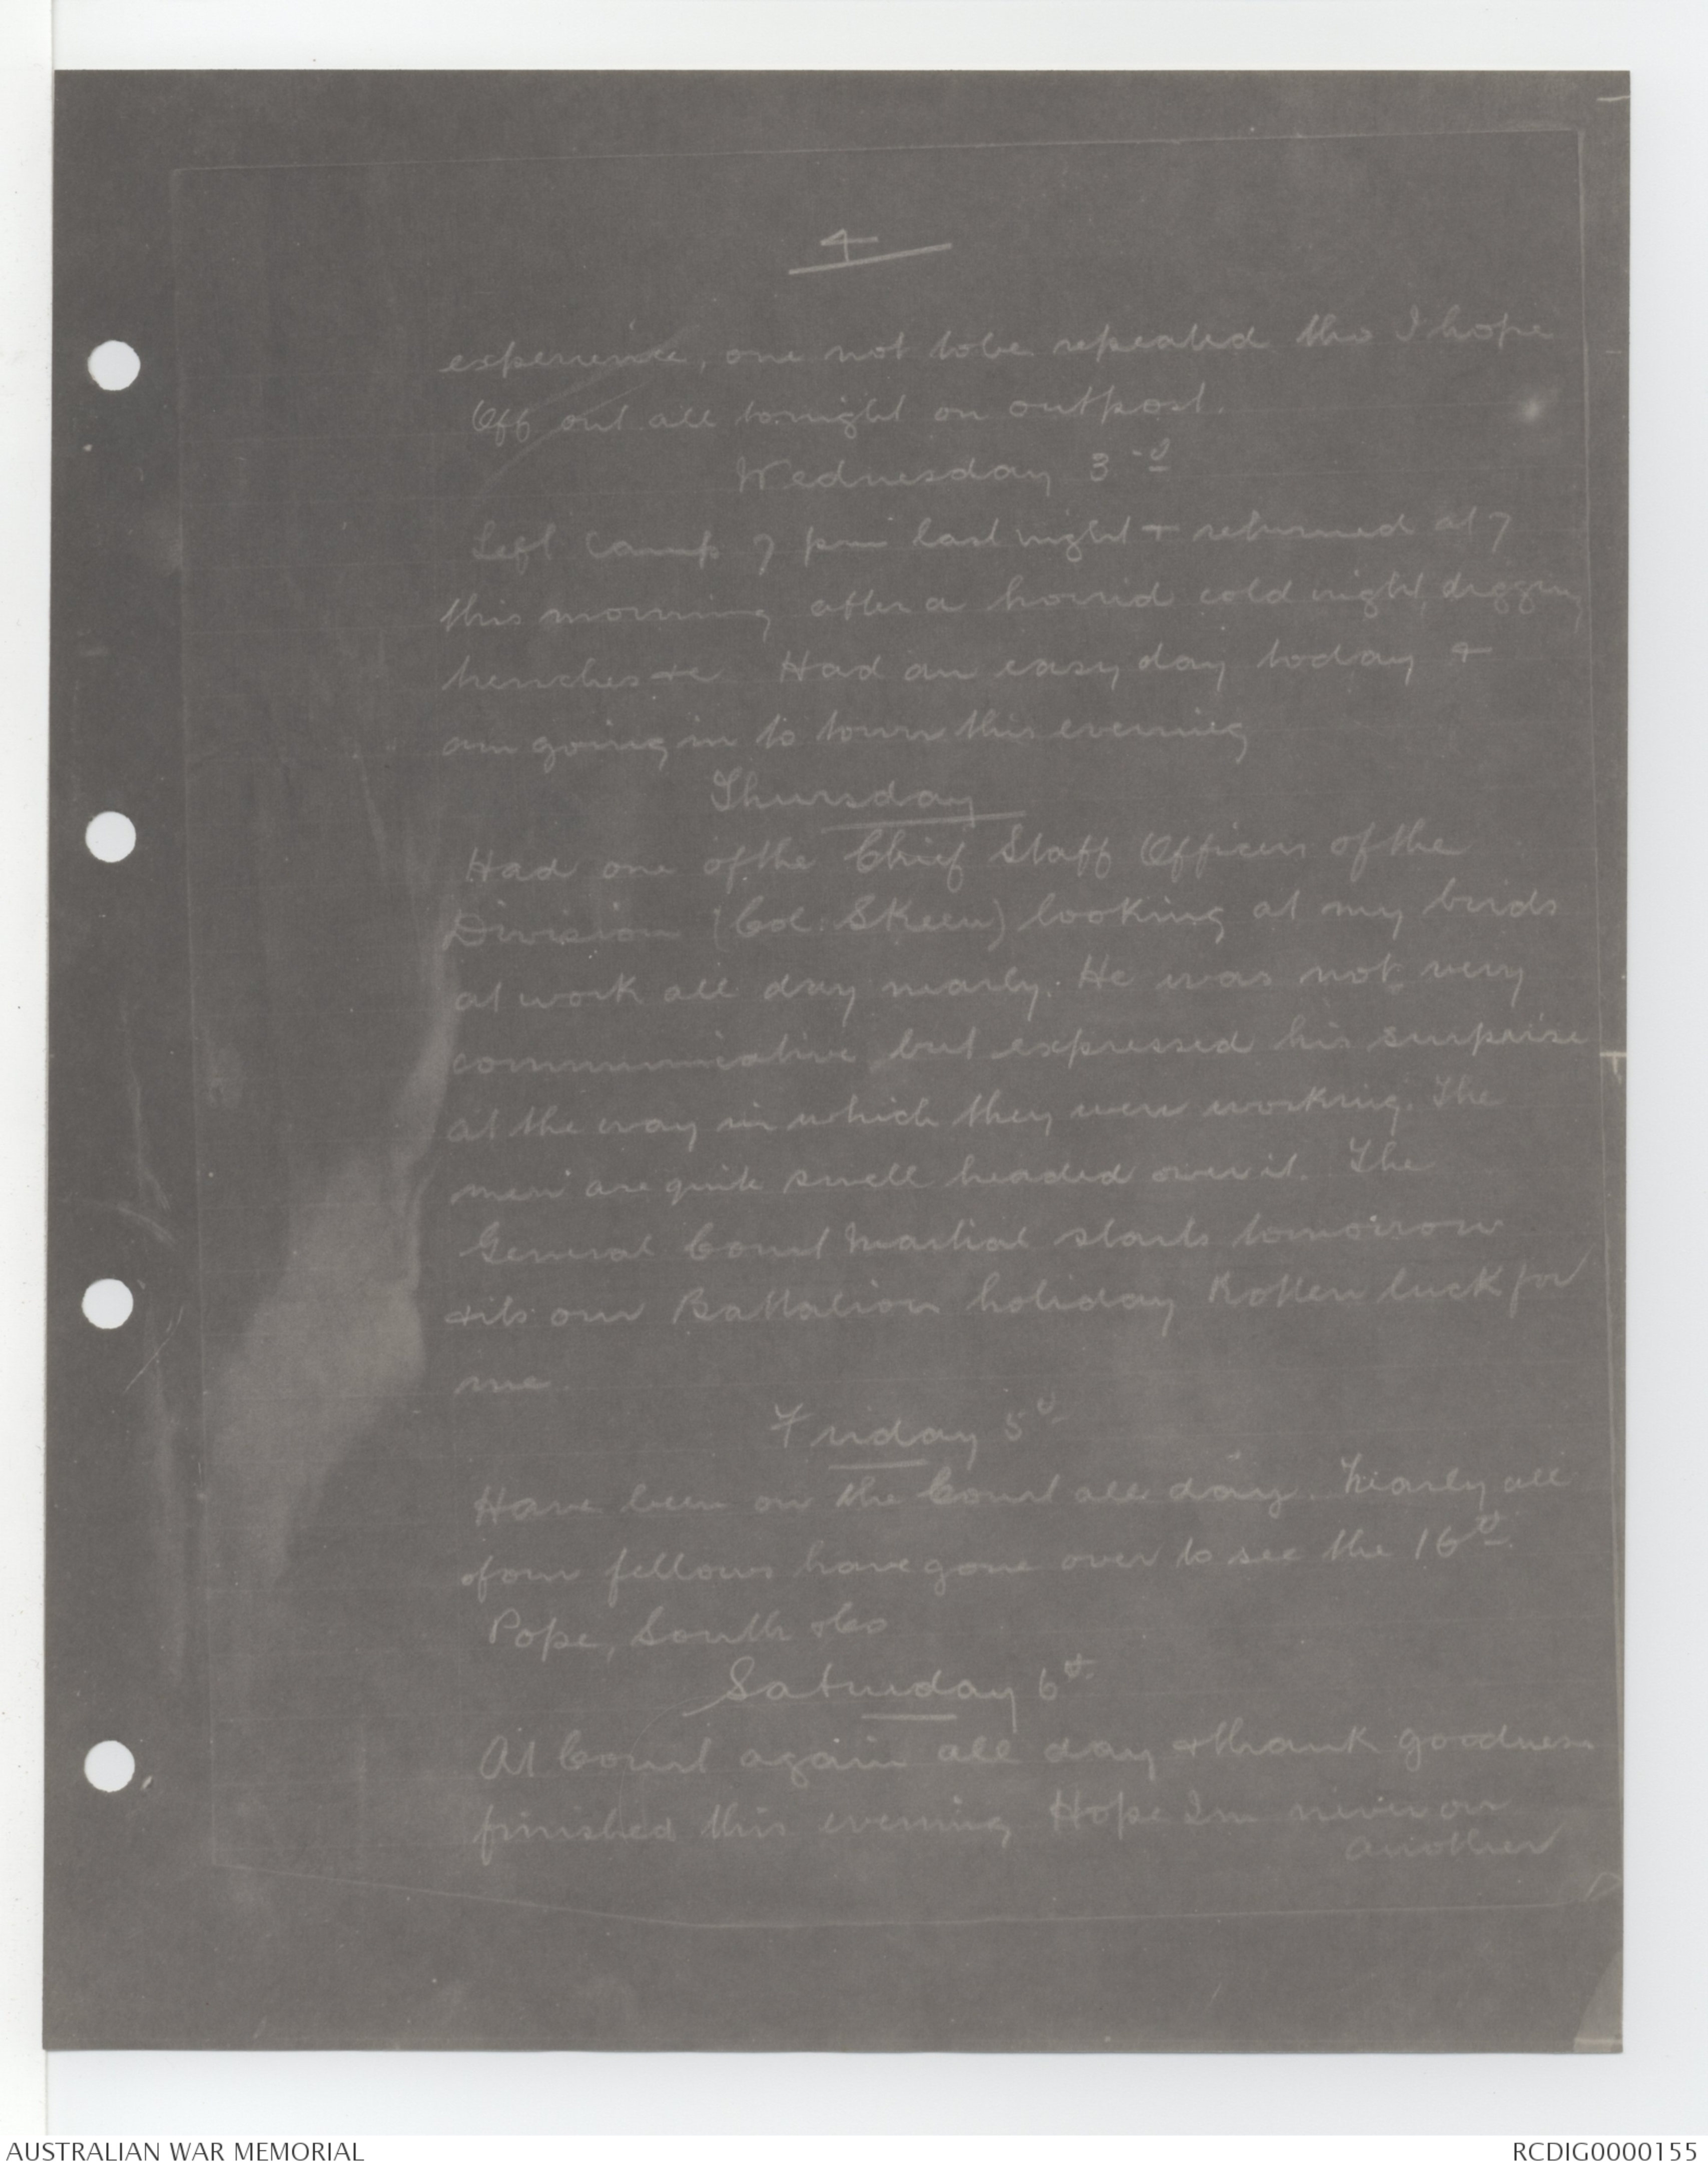 4
experience, one not to be repeated tho I hope
Off out all tonight on outpost.
Wednesday 3rd
Left Camp 7 pm last night + returned at 7
this morning after a horrid cold night, digging
trenches &c Had an easy day today +
am going in to town this evening
Thursday
Had one of the Chief Staff Officers of the
Division (Col. Skeen) looking at my birds
at work all day nearly. He was not very
communicative but expressed his surprise
at the way in which they were working. The
men are quite swell headed over it. The
General Court Martial starts tomorrow
+ its our Battalion holiday Rotten luck for
me
Friday 5th
Have been on the Court all day. Nearly all
of our fellows have gone over to see the 16th.
Pope, South &co
Saturday 6th
At Court again all day + thank goodness
finished this evening Hope Im never on
another
AUSTRALIAN WAR MEMORIAL
RCDIG0000155